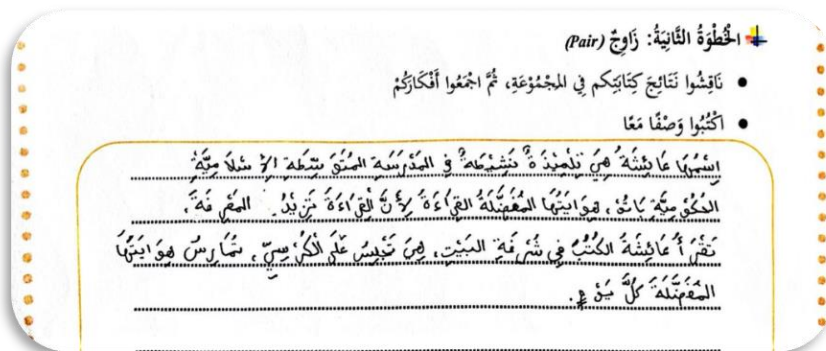 الْخُطْوَةُ الثَّانِيَةُ: زَاوِجْ (Pair)
نَاقِشُوا نَتَائِجَ كِتَابَتِكم فِي المَجْمُوْعَةِ، ثُمَّ اجْمَعُوا أَفْكَارَكُمْ
اكْتُبُوا وَصْفًا مَعًا
اِسْمُهَا عَائِشَةُ هِيَ تِلْمِيْذَةٌ نَشِيْطَةٌ فِي المَدْرَسَةِ المُتَوَسِّطَةِ الإِسْلَامِيَّةِ
الحَكُوْمِيَّةِ بَاتُو، هِوَايَتُهَا المُفَضَّلَةُ القِرَاءَةُ لِأَنَّ القِرَاءَةَ تَزِيْدُ المَعْرِفَةَ،
تَقْرَأُ عَائِشَةُ الكُتُبُ فِي شُرْفَةِ البَيْتِ، هِيَ تَجْلِسُ عَلَى الْكُرْسِيِّ، تُمَارِسُ هِوَايَتُهَا
المُفَضَّلَةَ كُلَّ يَوْمٍ.